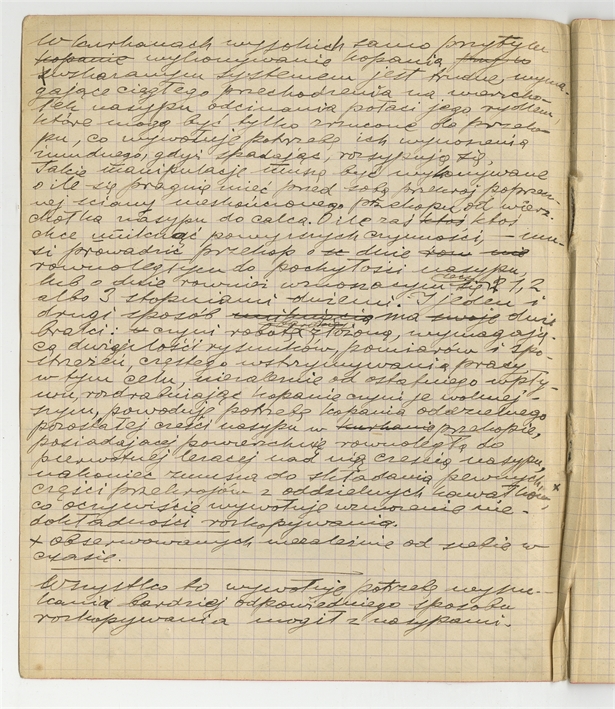 W kurhanach wysokich samo przytym
kopanie wykonywanie kopania
wskazanym systemem jest trudne, wyma-
gające ciągłego przechodzenia na wierzcho-
łek nasypu odcinania połaci jego rydlem,
które mogą być tylko zrzucone do przeko-
pu, co wywołuje potrzebę ich wynoszenia
żmudnego, gdyż spadając, rozsypują się.
Takie manipulacje muszą być wykonywane
o ile się pragnie mieć przed sobą przekrój poprzecz-
nej ściany nieskośnionego przekopu od wierz-
chołka nasypu do calca. O ile zaś ktoś ktoś
chce uniknąć powyższych czynności, – mu-
si prowadzić przekop o dnie
równoległym do pochyłości nasypu,
lub o dnie równi wznoszonym się 1, 2
albo 3 stopniami dniemi. I jeden i
drugi sposób ma swoje dwie
braki: czyni robotę złożoną, wymagają-
cą dwóch ilości rysunków, pomiarów i spo-
strzeżeń, częstego wstrzymywania pracy
w tym celu, niezależnie od ostatniego wpły-
wu, rozdrabniając kopanie czyni je wolniej-
szym, powoduje potrzebę kopania oddzielnego
pozostałej części nasypu w kurhanie przekopie,
posiadającej powierzchnię równoległą do
pierwotnej leżącej nad nią częścią nasypu,
nakoniec zmusza do składania pewnych
części przekrojów z oddzielnych kawałków, x
co oczywiście wywołuje wzmożenie nie-
dokładności rozkopywania.
x obserwowanych niezależnie od siebie w
czasie.
Wszystko to wywołuje potrzebę wyszu-
kania bardziej odpowiedniego sposobu
rozkopywania mogił z nasypami.